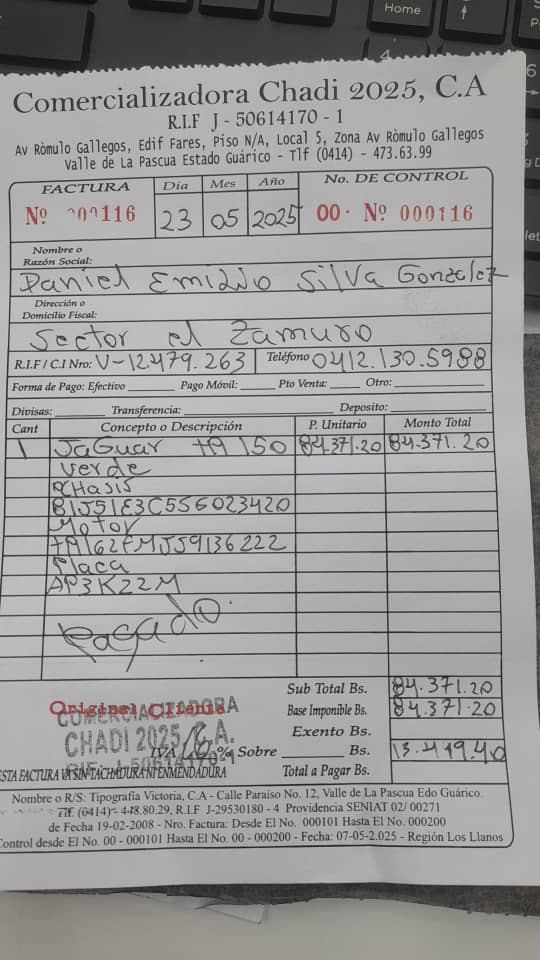 Comercializadora Chadi 2025, C.A
R.I.F J - 50614170 - 1
Av Ròmulo Gallegos, Edif Fares, Piso N/A, Local 5, Zona Av Ròmulo Gallegos
Valle de La Pascua Estado Guárico - Tlf (0414) - 473.63.99
FACTURA Día Mes Año No. DE CONTROL
Nº 000116 23 05 2025 00 - Nº 000116
Nombre o
Razón Social:
Daniel Emilio Silva Gonzalez
Dirección o
Domicilio Fiscal:
Sector el Zamuro
R.I.F / C.I Nro: V-12479.263 Teléfono 0412.130.5988
Forma de Pago: Efectivo Pago Móvil: Pto Venta: Otro:
Divisas: Transferencia: Deposito:
Cant Concepto o Descripción P. Unitario Monto Total
1 JaGuar TA 150 84.371.20 84.371.20
Verde
CHasis
81J51E3C5S6023420
Motor
TA162FMJJ9136222
Placa
AP3K22M
Pagado
Sub Total Bs. 84.371.20
Original Cliente
Base Imponible Bs. 84.371.20
COMERCIALIZADORA
CHADI 2025, C.A.
Exento Bs.
IVA 16 % Sobre Bs. 13.499.40
ESTA FACTURA VA SIN TACHADURA NI ENMENDADURA
Total a Pagar Bs.
Nombre o R/S: Tipografía Victoria, C.A - Calle Paraíso No. 12, Valle de La Pascua Edo Guárico.
Tlf. (0414)- 448.80.29, R.I.F J-29530180 - 4 Providencia SENIAT 02/ 00271
de Fecha 19-02-2008 - Nro. Factura: Desde El No. 000101 Hasta El No. 000200
Control desde El No. 00 - 000101 Hasta El No. 00 - 000200 - Fecha: 07-05-2.025 - Región Los Llanos
Home